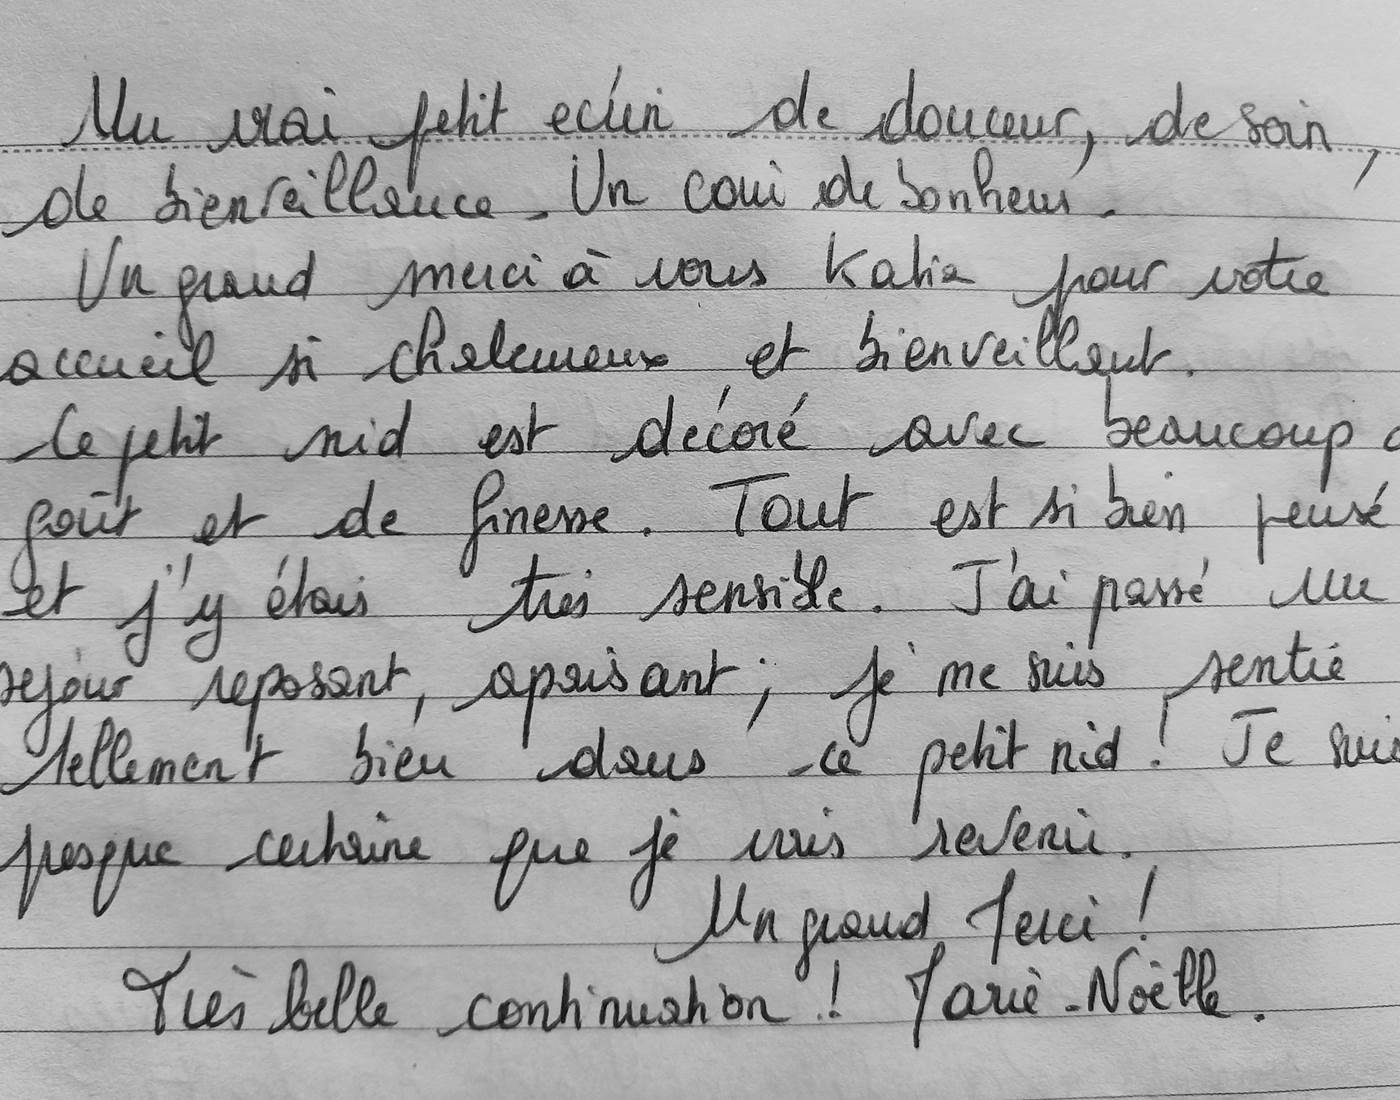 Un vrai petit ecrin de douceur, de soin,
de bienveillance. Un coin de bonheur.
Un grand merci à vous Katia pour votre
accueil si chaleureux et bienveillant.
Ce petit nid est décoré avec beaucoup
goût et de finesse. Tout est si bien pensé
et j'y étais très sensible. J'ai passé un
sejour reposant, apaisant; je me suis sentie
tellement bien dans ce petit nid! Je suis
presque certaine que je vais revenir.
Un grand Merci!
Très belle continuation! Marie-Noëlle.